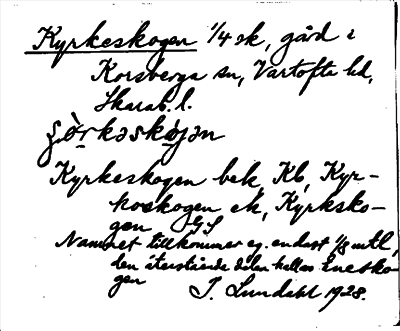 Kyrkeskogen 1/4 sk, gård i
Korsberga sn, Vartofta hd,
Skarab. l.
Kyrkeskogen bek, Kb, Kyr-
koskogen ek, Kyrksko-
gen GS
Namnet tillkommer eg. endast 1/8 mtl,
den återstående delen kallas Enesko-
gen
J. Lundahl 1928.